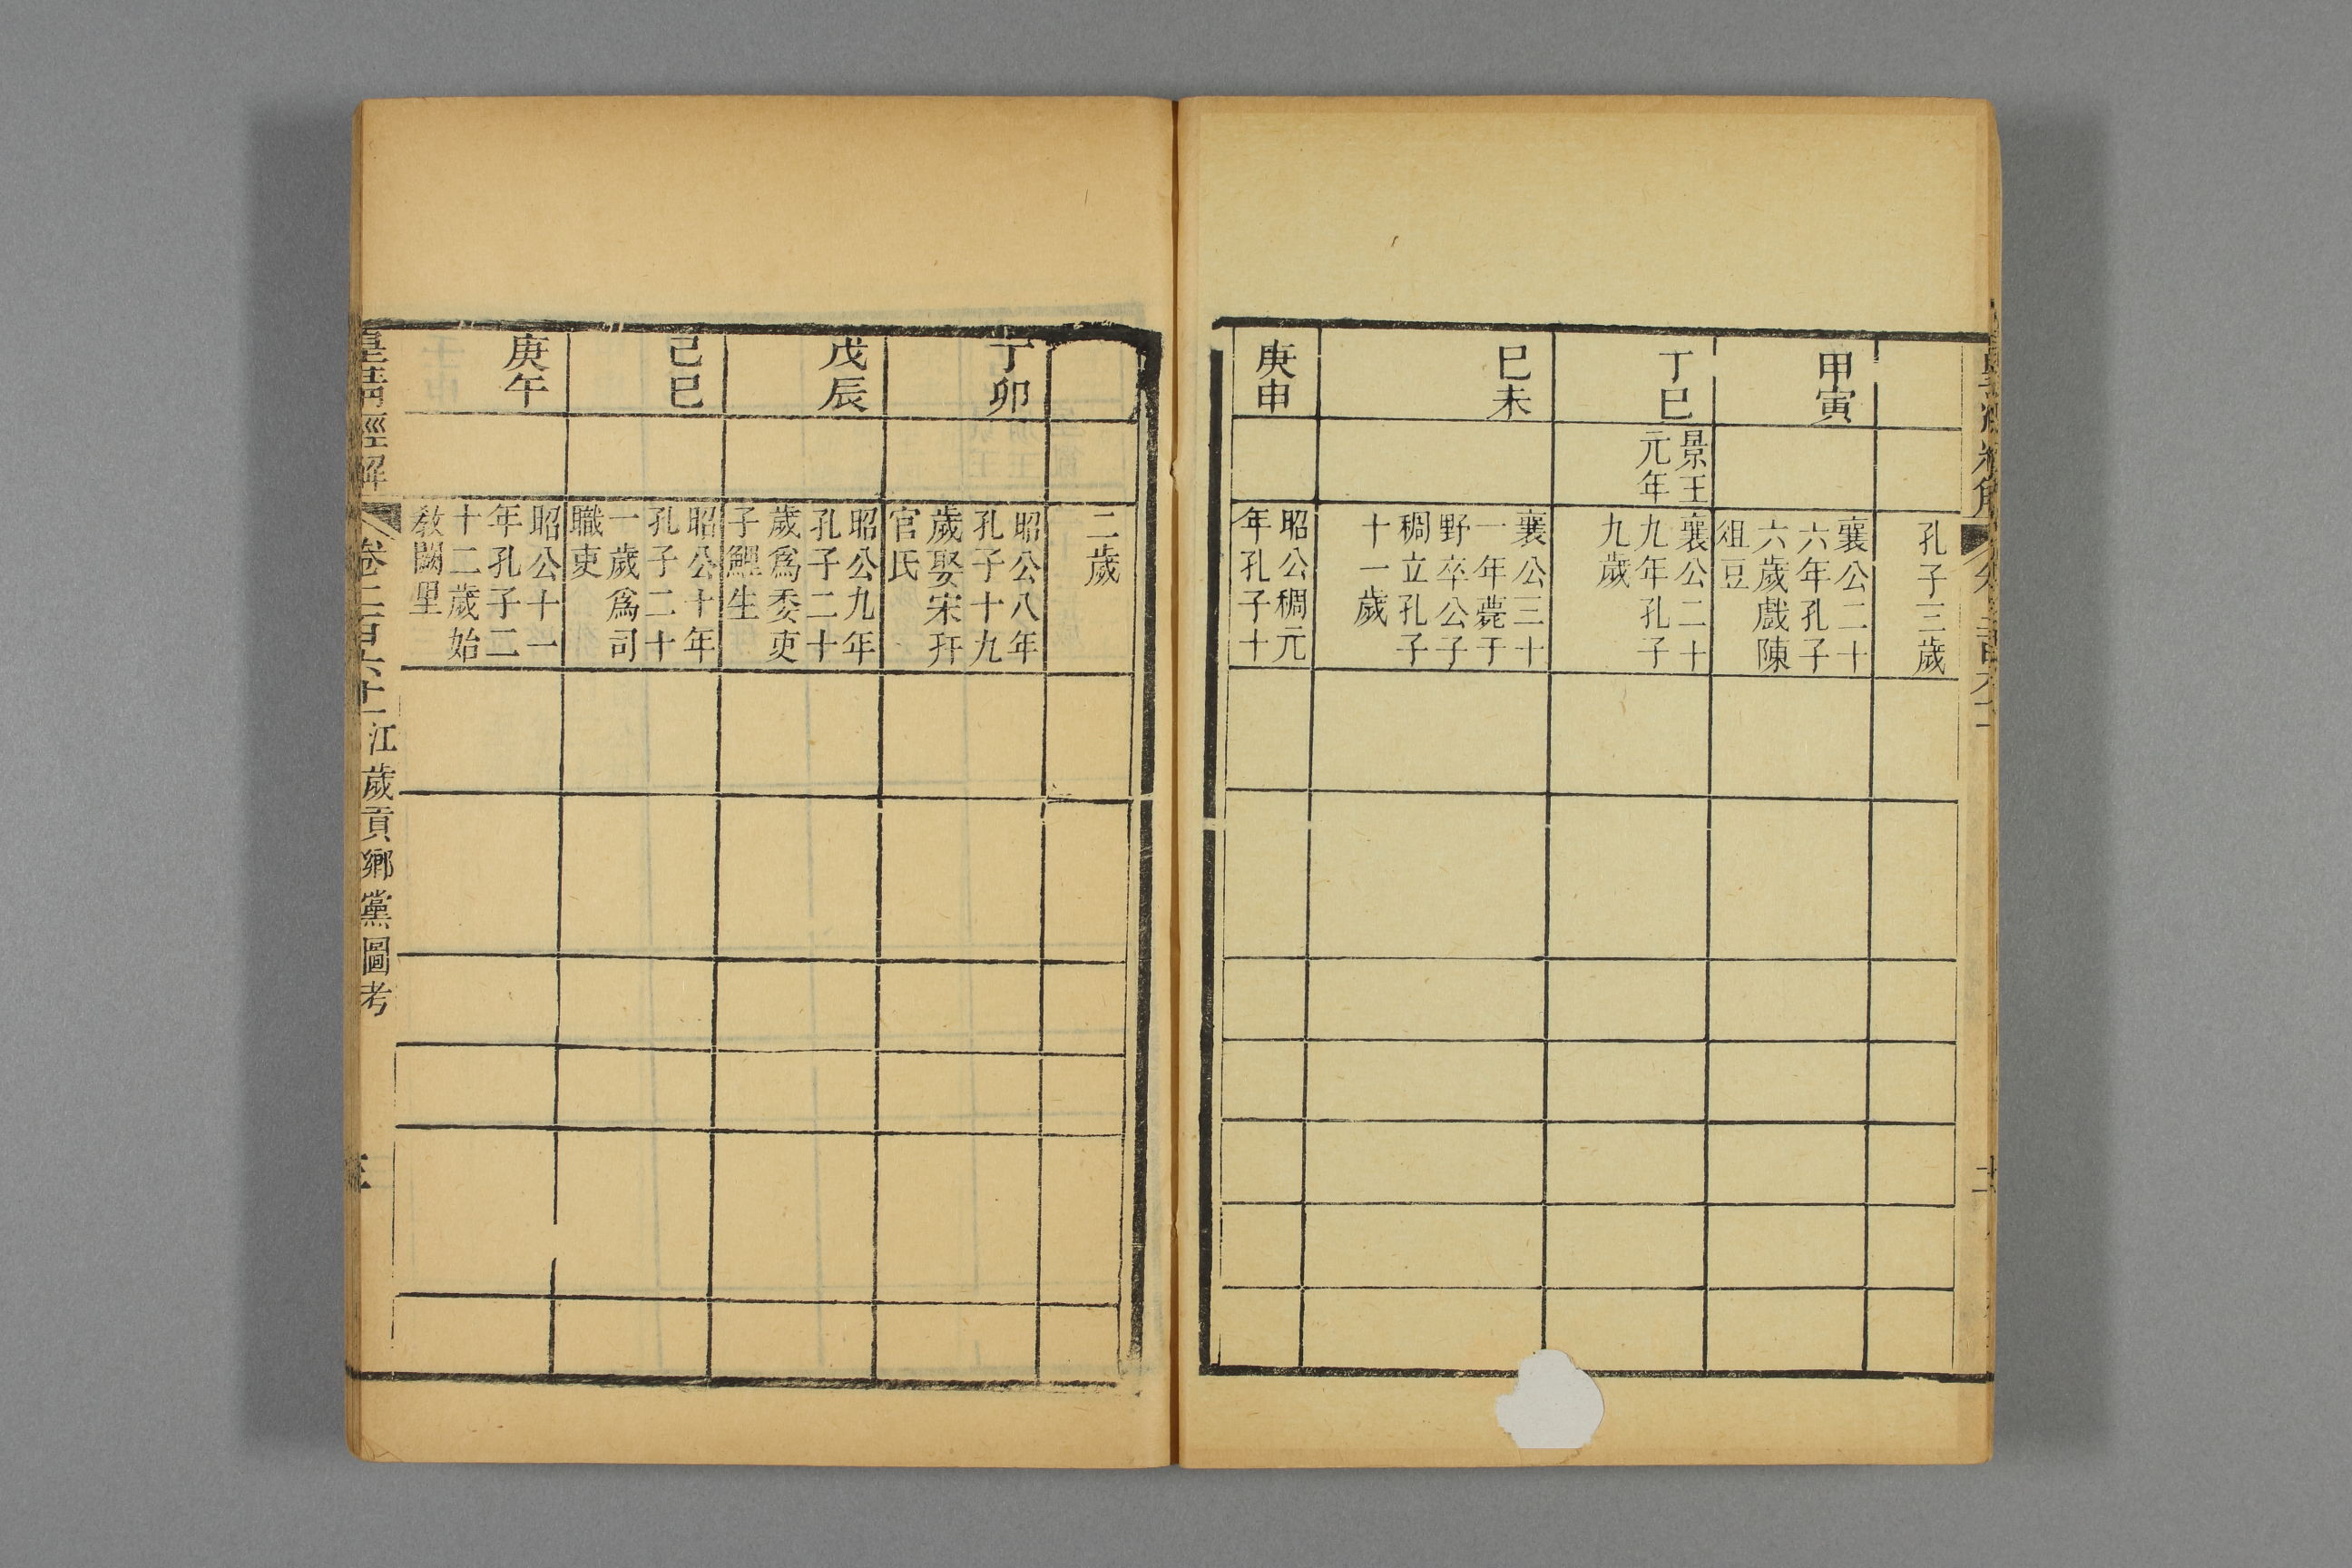 孔子三歲
甲寅
襄公二十
六年孔子
六歲戲陳
俎豆
丁巳
景王
元年
襄公二十
九年孔子
九歲
巳未
襄公三十
一年薨于
野卒公子
稠立孔子
十一歲
庚申
昭公稠元
年孔子十
二歲
丁卯
昭公八年
孔子十九
歲娶宋幵
官氏
戊辰
昭公九年
孔子二十
歲爲委吏
子鯉生
己巳
昭公十年
孔子二十
一歲爲司
職吏
庚午
昭公十一
年孔子二
十二歲始
敎闕里
皇淸經解
卷二百六十一
江歲貢鄉黨圖考